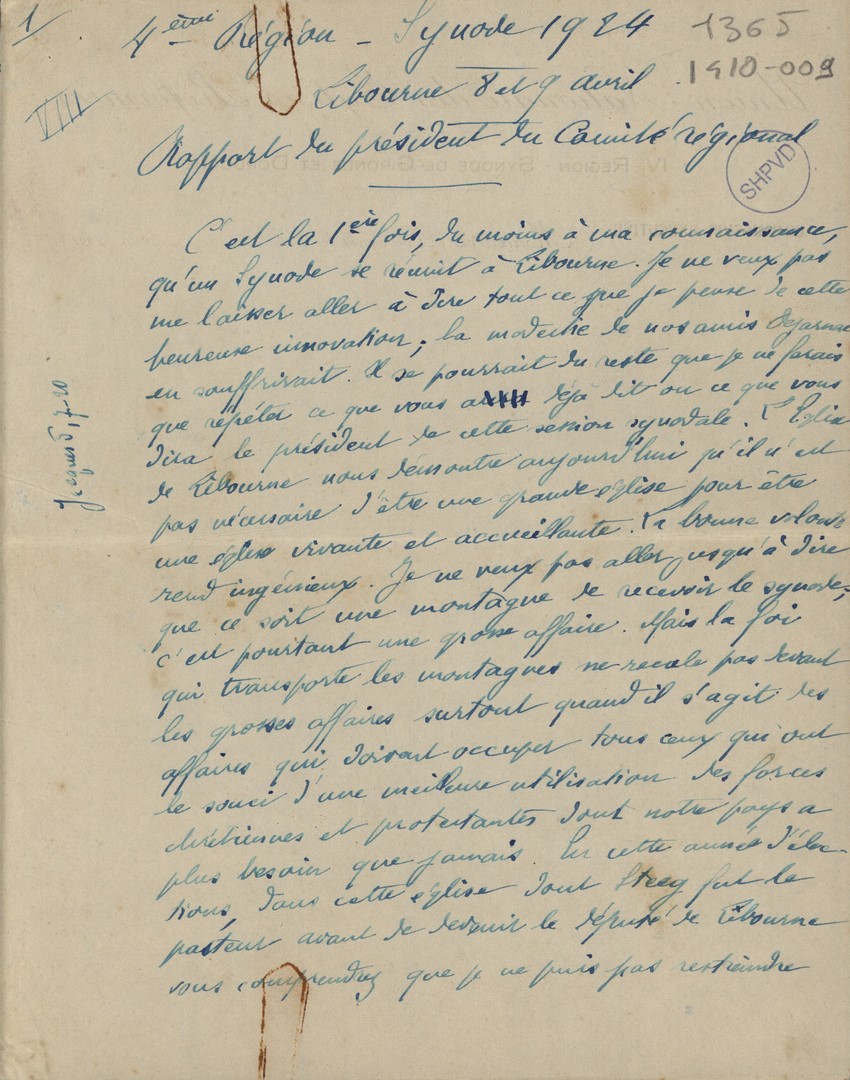 1
4ème Région - Synode 1924
1365
1910-009
Libourne 8 et 9 avril
VIII
Rapport du président du Comité régional
SHPVD
C'est la 1ère fois, du moins à ma connaissance,
qu'un Synode se réunit à Libourne. Je ne veux pas
me laisser aller à dire tout ce que je pense de cette
heureuse innovation; la modestie de nos amis
en souffrirait. Il se pourrait du reste que je ne ferais
que répéter ce que vous a déjà dit ou ce que vous
dira le président de cette session synodale. L'Eglise
de Libourne nous démontre aujourd'hui qu'il n'est
pas nécessaire d'être une grande église pour être
une église vivante et accueillante. La bonne volonté
rend ingénieux. Je ne veux pas aller jusqu'à dire
que ce soit une montagne de recevoir le synode;
c'est pourtant une grosse affaire. Mais la foi
qui transporte les montagnes ne recule pas devant
les grosses affaires surtout quand il s'agit des
affaires qui doivent occuper tous ceux qui ont
le souci d'une meilleure utilisation des forces
chrétiennes et protestantes dont notre pays a
plus besoin que jamais. En cette année d'élec-
tions, dans cette église dont Steeg fut le
pasteur avant de devenir le député de Libourne
vous comprendrez que je ne puis pas restreindre
Jacques 5, 7-20